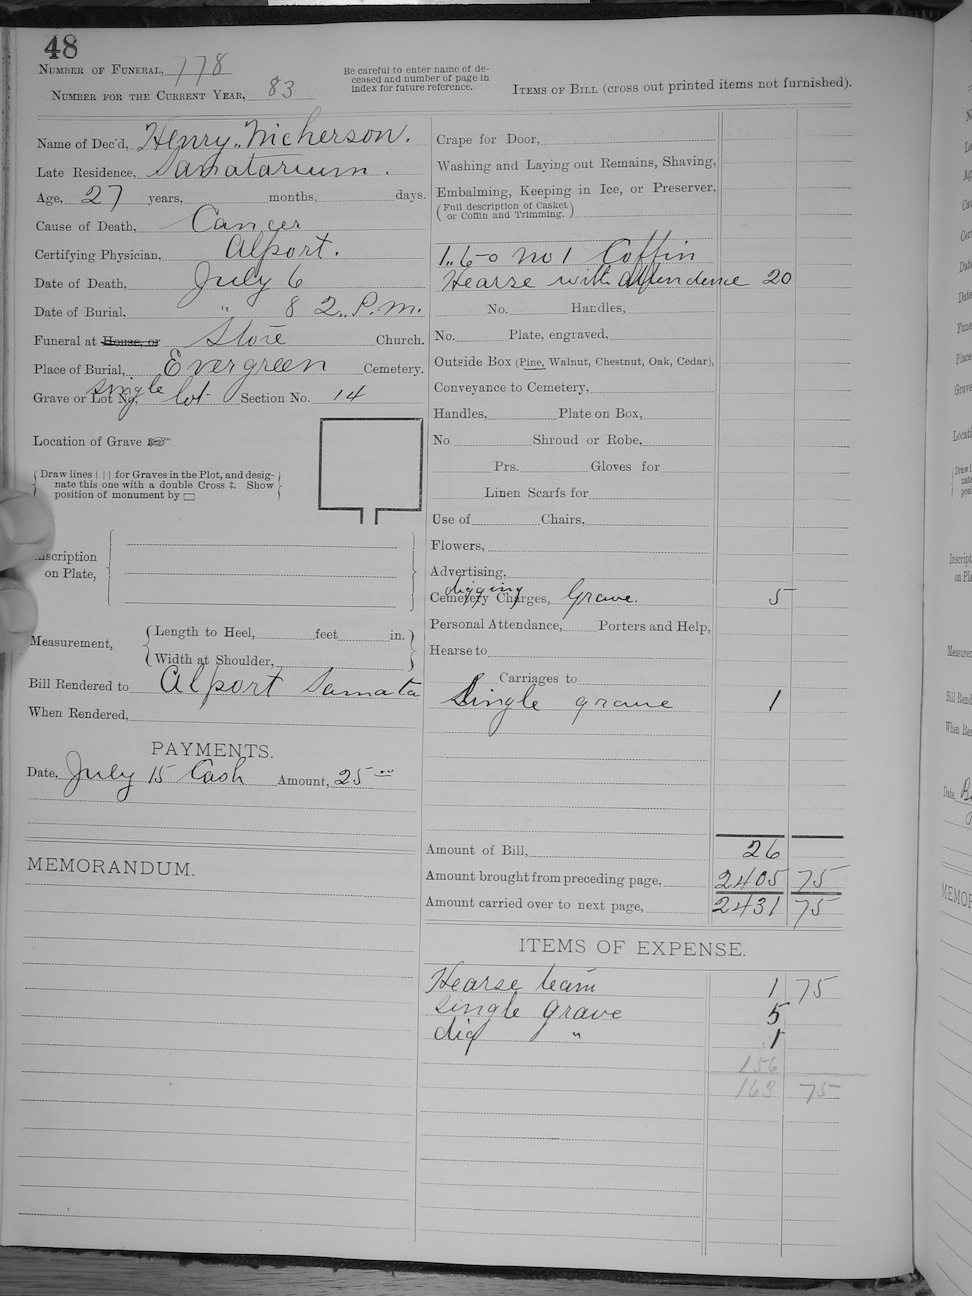 48
NUMBER OF FUNERAL, 778
NUMBER FOR THE CURRENT YEAR, 83
Be careful to enter name of de-
ceased and number of page in
index for future reference.
ITEMS OF BILL (cross out printed items not furnished).
Name of Dec'd, Henry Nicherson.
Late Residence, Samatarium.
Age, 27 years, months, days.
Cause of Death, Cancer
Certifying Physician, Alport.
Date of Death, July 6
Date of Burial, " 8 2.. P.M.
Funeral at House, or Store Church.
Place of Burial, Evergreen Cemetery.
Grave or Lot No, single lot Section No. 14
Location of Grave ☞
Draw lines | | | for Graves in the Plot, and desig-
nate this one with a double Cross ‡. Show
position of monument by ▭
Inscription
on Plate,
Measurement,
Length to Heel, feet in.
Width at Shoulder,
Bill Rendered to Alport Samata
When Rendered,
PAYMENTS.
Date, July 15 Cash Amount, 25
MEMORANDUM.
Crape for Door,
Washing and Laying out Remains, Shaving,
Embalming, Keeping in Ice, or Preserver,
(Full description of Casket
or Coffin and Trimming.)
1,,6-0 no 1 Coffin
Hearse with attendence 20
No. Handles,
No. Plate, engraved,
Outside Box (Pine, Walnut, Chestnut, Oak, Cedar),
Conveyance to Cemetery,
Handles, Plate on Box,
No. Shroud or Robe,
Prs. Gloves for
Linen Scarfs for
Use of Chairs,
Flowers,
Advertising,
digging
Cemetery Charges, Grave. 5
Personal Attendance, Porters and Help,
Hearse to
Carriages to
Single grave 1
Amount of Bill, 26
Amount brought from preceding page, 2405 75
Amount carried over to next page, 2431 75
ITEMS OF EXPENSE.
Hearse team 1 75
single grave 5
dig " 1
156
163 75